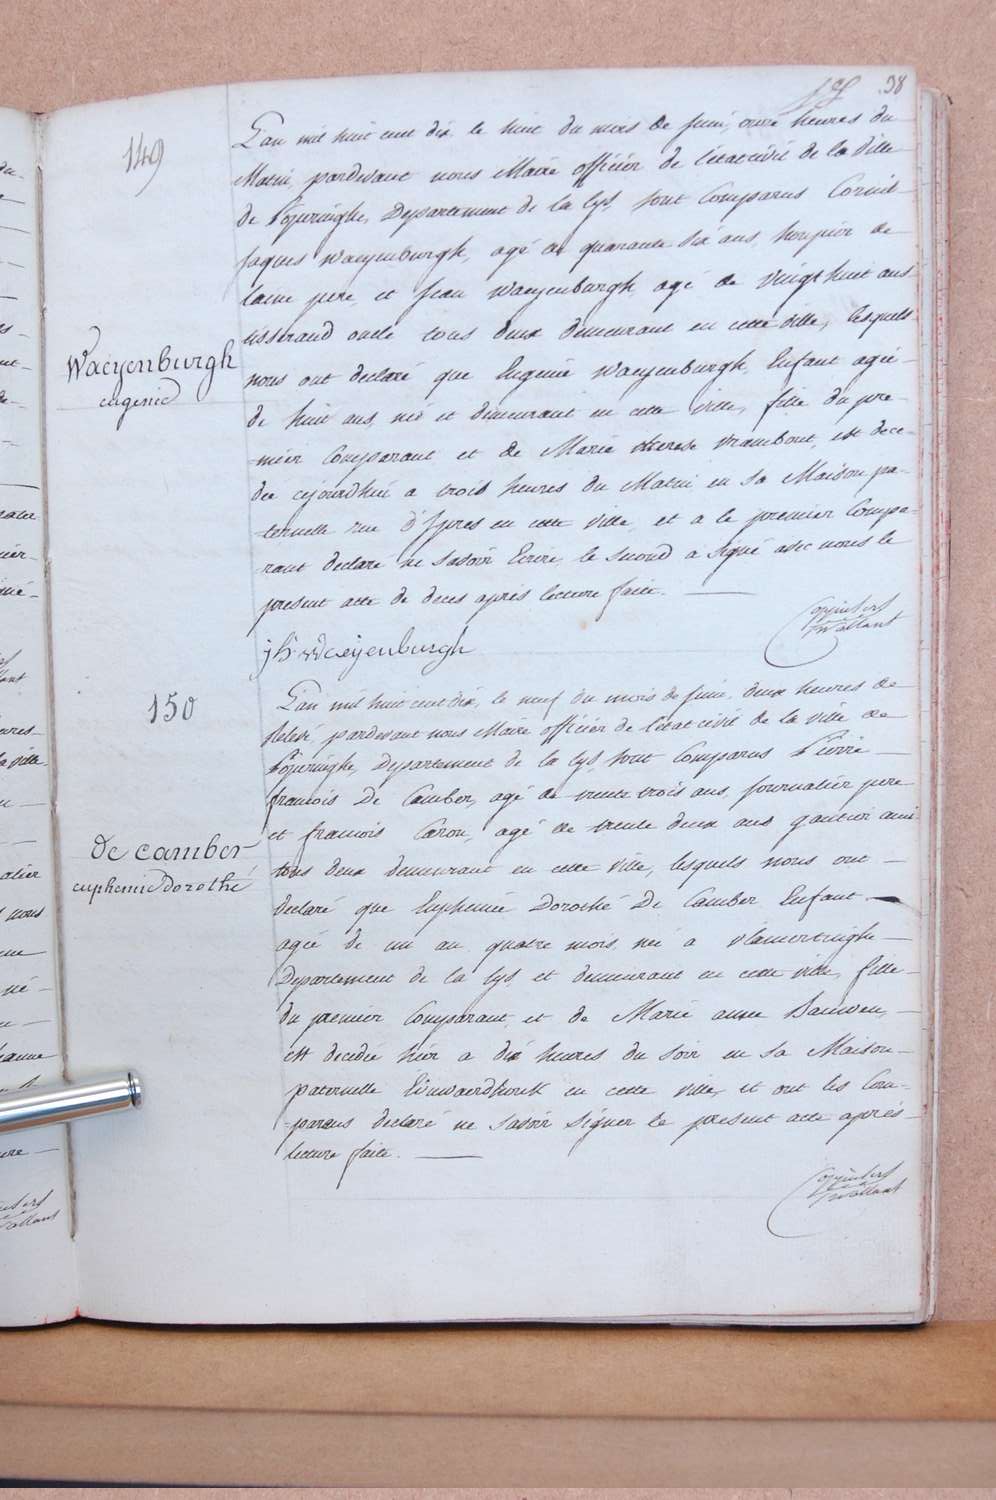 38
149
L'an mil huit cent dix le huit du mois de juin, onze heures du
Matin, pardevant nous Maire officier de l'état civil de la ville
de Poperinghe, Departement de la Lys, sont Comparus Cornil
Jaques Waeyenburgh, agé de quarante six ans, houpier de
laine pere, et Jean Waeyenburgh, agé de vingt huit ans
tisserand oncle tous deux demeurant en cette ville, lesquels
Waeyenburgh
eugenie
nous ont declaré que Eugenie Waeyenburgh, Enfant agée
de huit ans, née et demeurant en cette ville, fille du pre-
-mier Comparant et de Marie therese vrambout, est dece-
dée cejourdhui a trois heures du Matin en sa Maison pa-
-ternelle rue d'Ypres en cette ville, et a le premier Compa-
-rant declaré ne savoir Ecrire, le second a signé avec nous le
present acte de deces après lecture faite.
j h waeyenburgh
150
L'an mil huit cent dix, le neuf du mois de juin, deux heures de
Relevé, pardevant nous Maire officier de l'état civil de la ville de
Poperinghe, Departement de la Lys, sont Comparus Pierre
francois De Camber, agé de trente trois ans, journalier pere
et francois Caron, agé de trente deux ans gantier ami
de camber
euphemie Dorothé
tous deux demeurant en cette ville, lesquels nous ont
declaré que Euphemie Dorothé De Camber, Enfant
agée de un an quatre mois, née a vlamertinghe
Departement de la Lys, et demeurant en cette ville, fille
du premier Comparant, et de Marie anne Bauwen,
est decedée hier a dix heures du soir en sa Maison
paternelle en cette ville, et ont les Com-
-parans declaré ne savoir signer le present acte après
lecture faite.